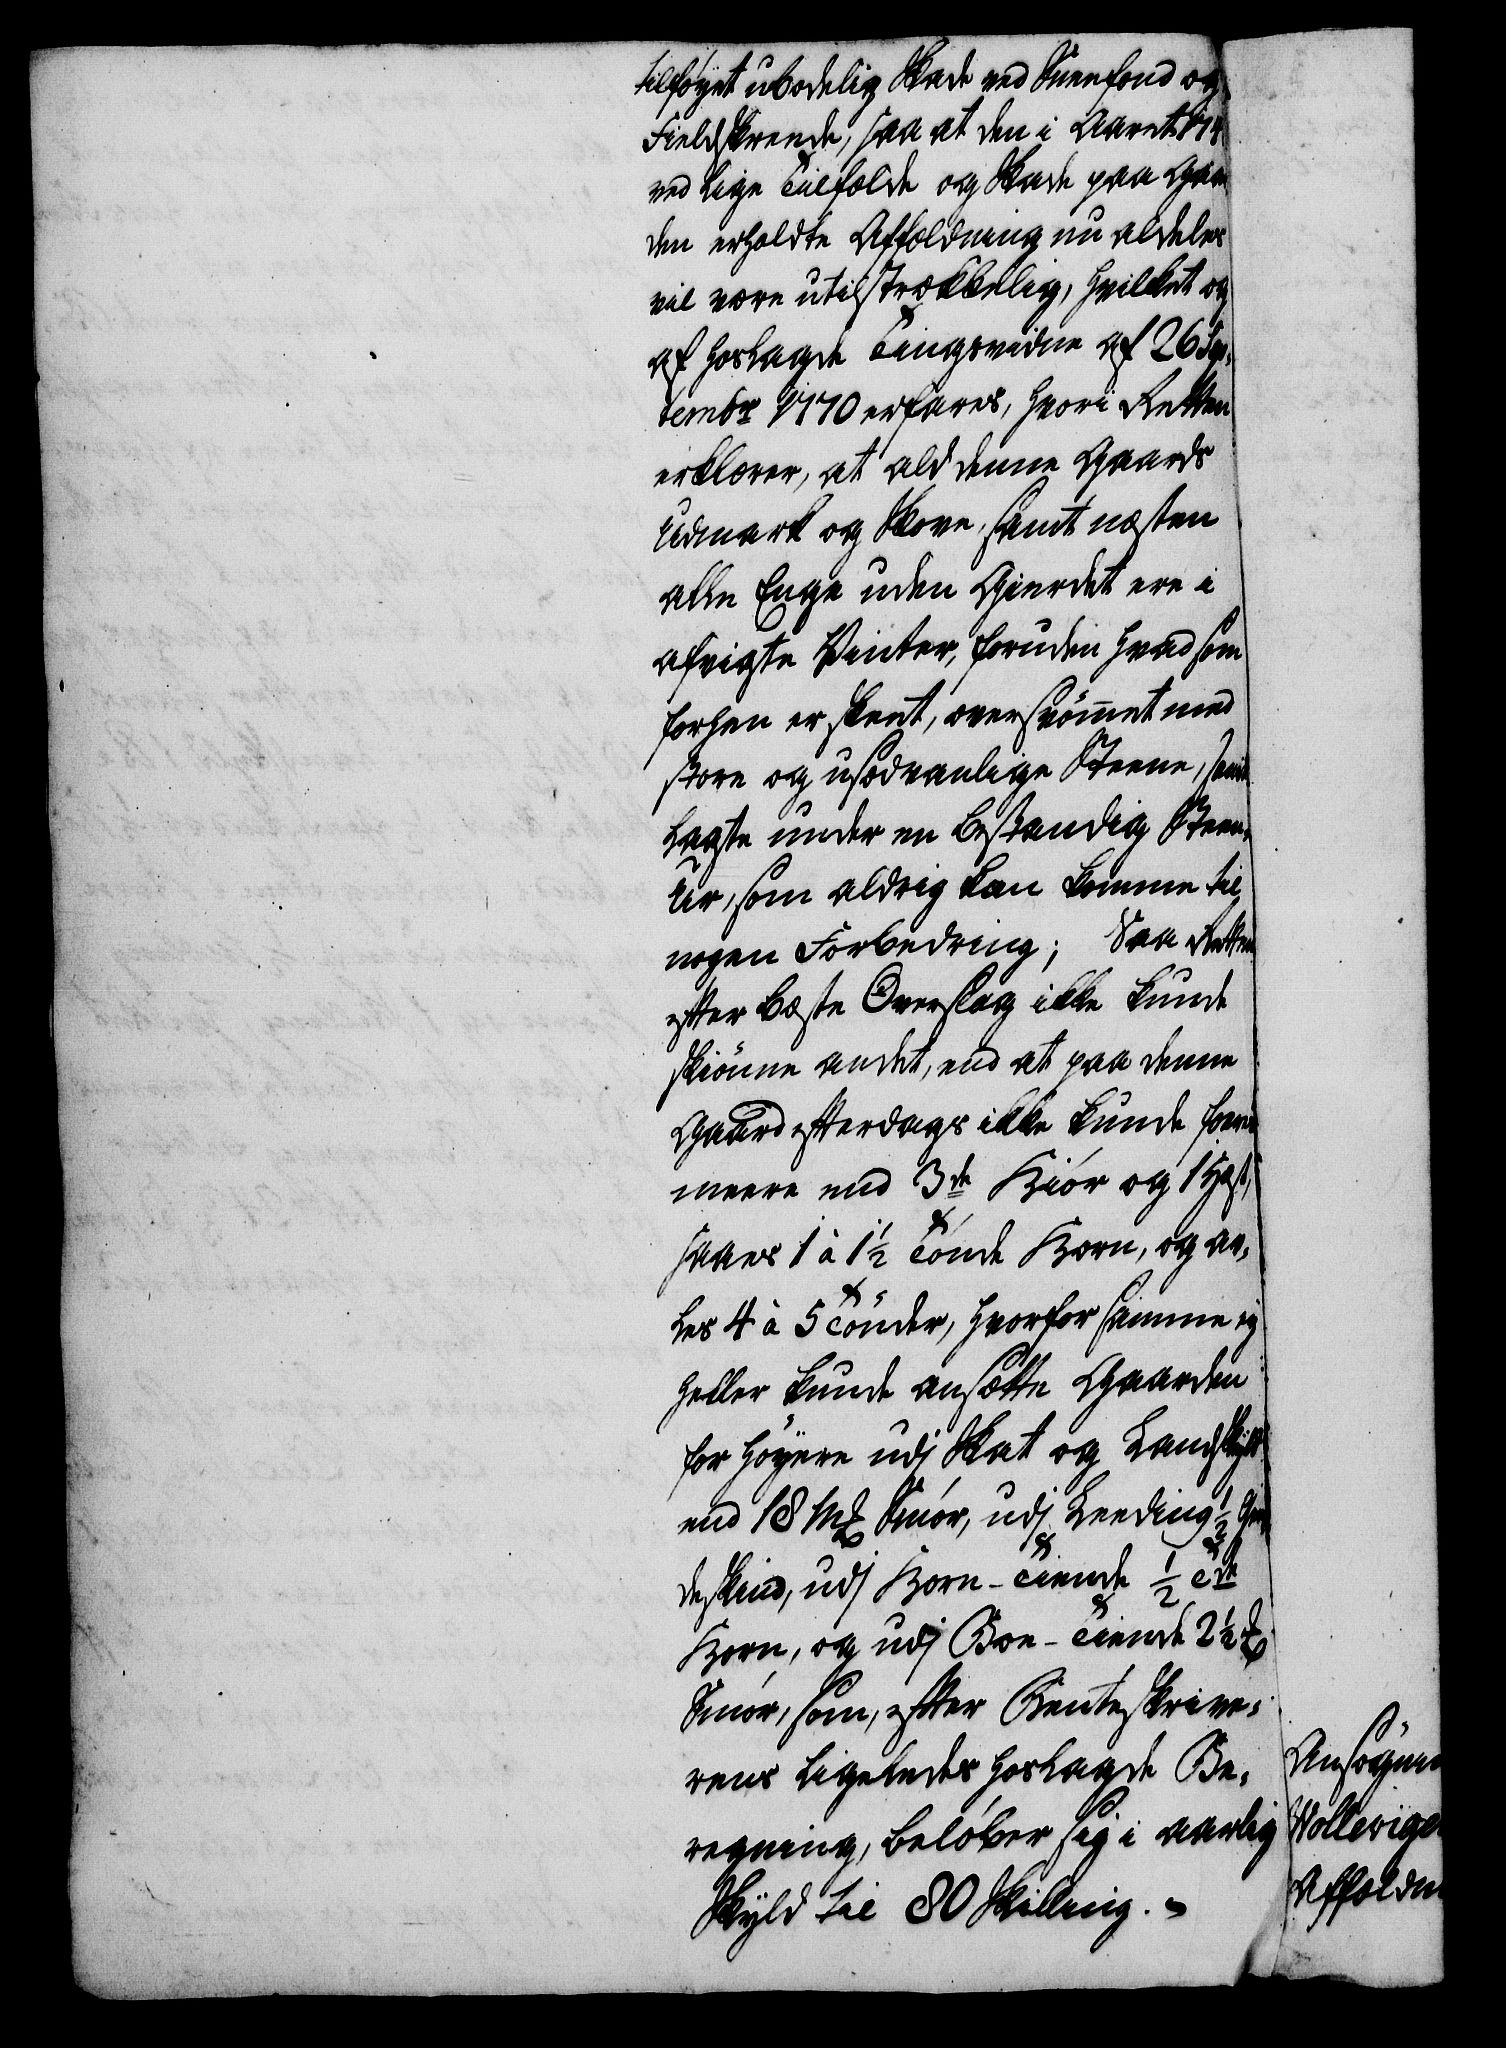 tilføyet ubodelig Skade ved Sneefond og
Fieldskrede, saa at den i Aaret 174
ved lige Tilfælde og Skade paa Gaar
den erholdte Affældning nu aldeles
vil være utilstrækkelig, hvilket og
af hoslagde Tingsvidne af 26 Sep-
tembr 1770 erfares, hvori Retten
erklærer, at ald denne Gaards
Udmark og Skove, samt næsten
alle Enge uden Gierdet ere i
afvigte Vinter, foruden hvad som
forhen er skeet, oversvömmet med
store og usædvanlige Steene, samt
lagte under en bestandig Steen-
Ur, som aldrig kan komme til
nogen Forbedring; Saa Retten
efter beste Overslag ikke kunde
skiönne andet, end at paa denne
Gaard efterdags ikke kunde föeres
meere end 3de Kiör og 1 Hest,
saaes 1 à 1½ Tönde Korn, og av-
les 4 à 5 Tönder, hvorfor samme ey
heller kunde ansætte Gaarden
for höyere udj Skat og Landskyld
end 18 Mk Smör, udj Leeding ½ Gie
deskind, udj Korn-Tiende ½ Tde
Korn, og udj Boe-Tiende 2½ ℔
Smör, som, efter Renteskrive-
rens ligeledes hoslagde Be-
regning, belöber sig i aarlig
Skyld til 80 Skilling.
Ansögnin
Wollevige
Affældn